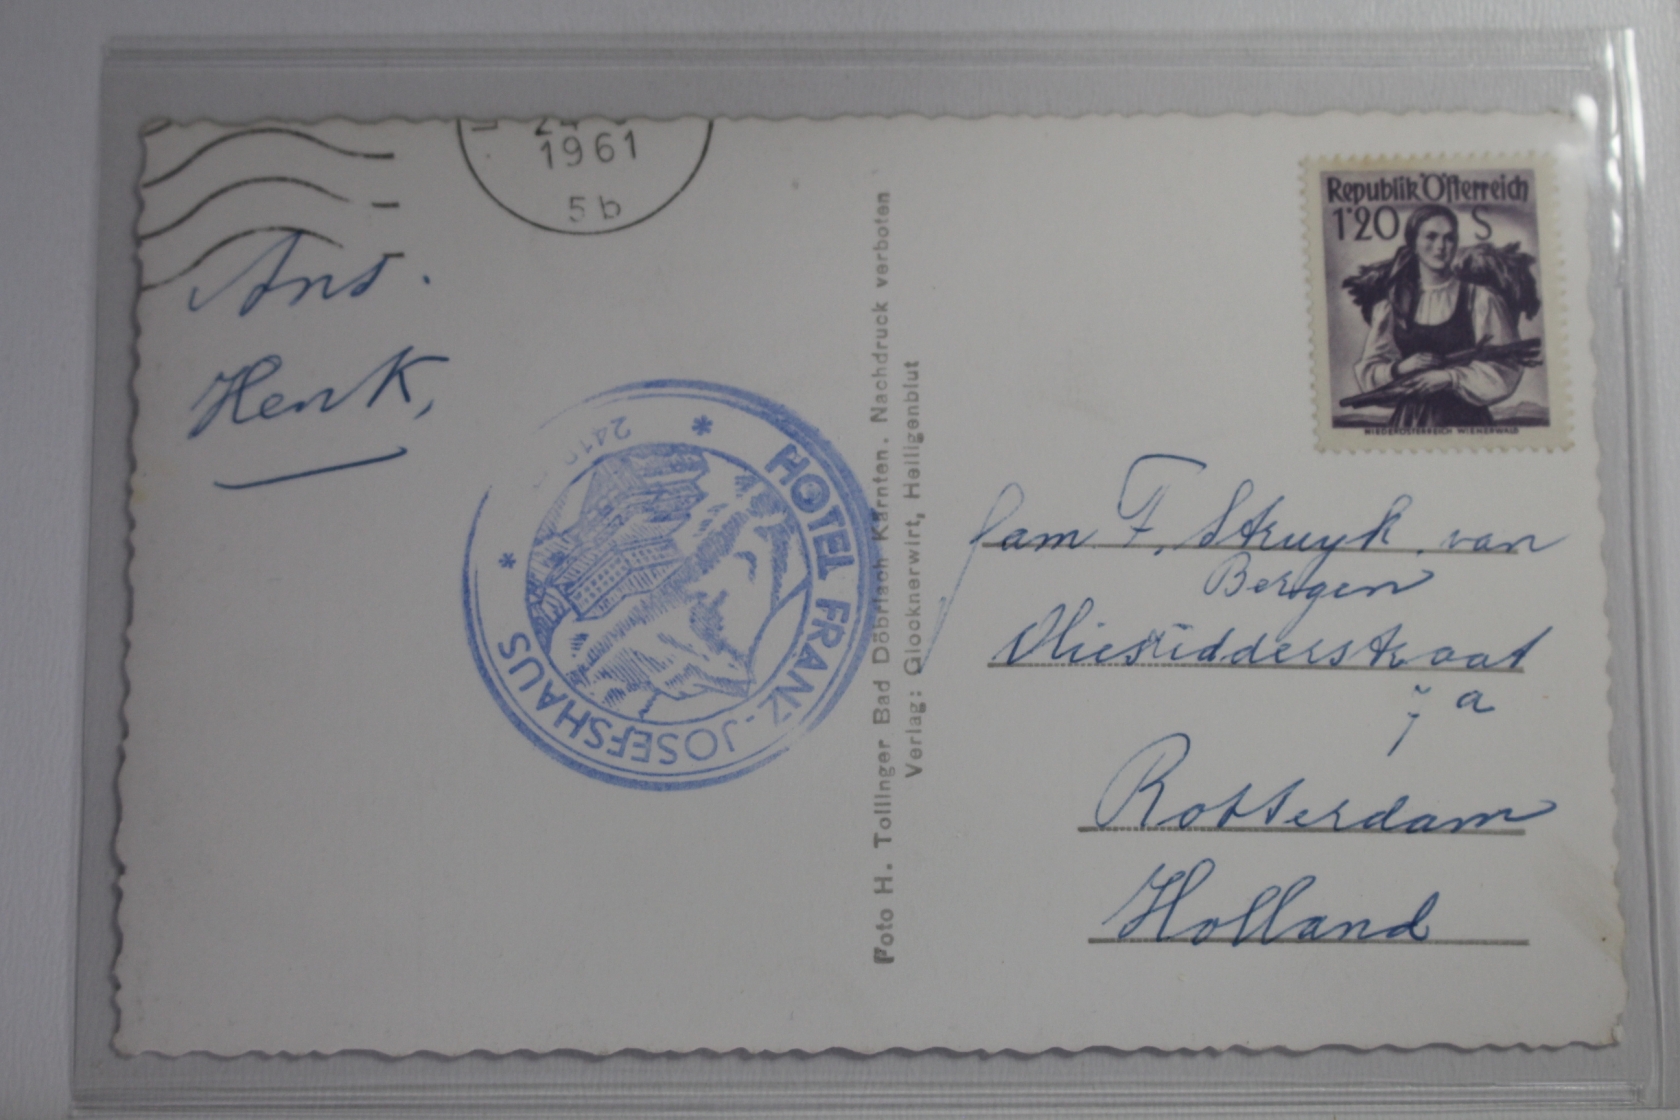 1961
5 b
Ans.
Henk,
* HOTEL FRANZ-JOSEFSHAUS *
Foto H. Tollinger Bad Döbriach Kärnten. Nachdruck verboten
Verlag: Glocknerwirt, Heiligenblut
Republik Österreich
1·20 S
NIEDERÖSTERREICH WIENERWALD
fam. F. Struyk van
Bergen
Vliesridderstraat
7 a
Rotterdam
Holland